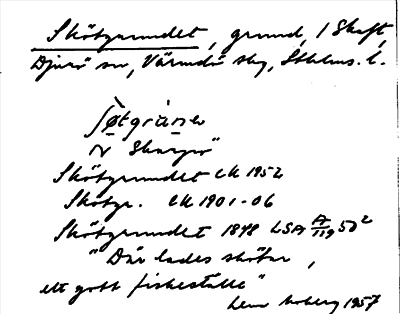 Skötgrundet, grund, 1 Skef,
Djurö sn, Värmdö skg, Sthlms. l.
ʃø̀tgrànˈe
N Skarpö
Skötgrundet EK 1952
Skötgr. EK 1901-06
Skötgrundet 1898 LSA A/119 50²
"Där lades skötar,
ett gott fiskeställe"
Moberg 1957